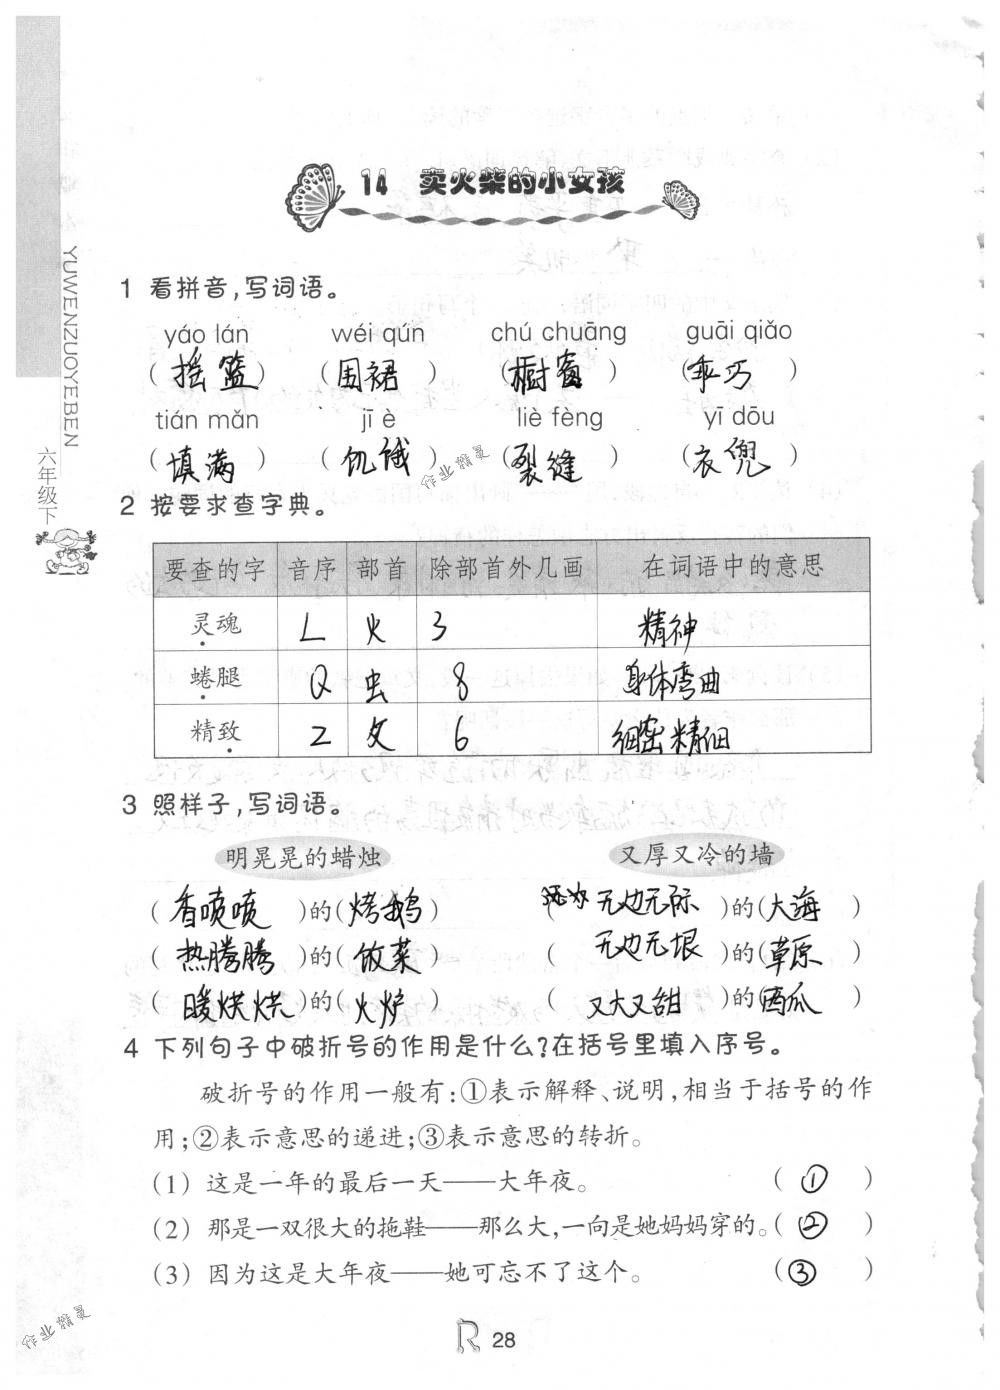 14 卖火柴的小女孩
1 看拼音,写词语。
yáo lán wéi qún chú chuāng guāi qiǎo
(摇篮) (围裙) (橱窗) (乖巧)
tián mǎn jī è liè fèng yī dōu
(填满) (饥饿) (裂缝) (衣兜)
2 按要求查字典。
要查的字 音序 部首 除部首外几画 在词语中的意思
灵魂 L 火 3 精神
蜷腿 Q 虫 8 身体弯曲
精致 Z 攵 6 细密精细
3 照样子,写词语。
明晃晃的蜡烛 又厚又冷的墙
(香喷喷)的(烤鹅) (无边无际)的(大海)
(热腾腾)的(饭菜) (无边无垠)的(草原)
(暖烘烘)的(火炉) (又大又甜)的(西瓜)
4 下列句子中破折号的作用是什么?在括号里填入序号。
破折号的作用一般有:①表示解释、说明,相当于括号的作
用;②表示意思的递进;③表示意思的转折。
(1) 这是一年的最后一天——大年夜。 (①)
(2) 那是一双很大的拖鞋——那么大,一向是她妈妈穿的。(②)
(3) 因为这是大年夜——她可忘不了这个。 (③)
R 28
YUWENZUOYEBEN
六年级下
作业精灵
作业精灵